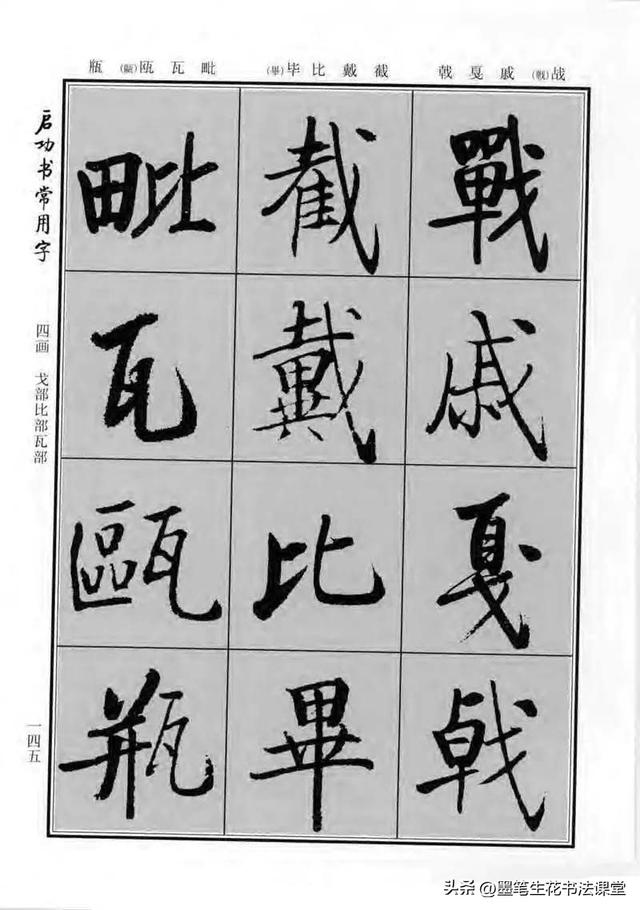 战(戰)戚戛戟 截戴比毕(畢) 毗瓦瓯(甌)瓶
戰戚戛戟
截戴比畢
毗瓦甌瓶
启功书常用字
四画 戈部比部瓦部
一四五
头条@墨笔生花书法课堂